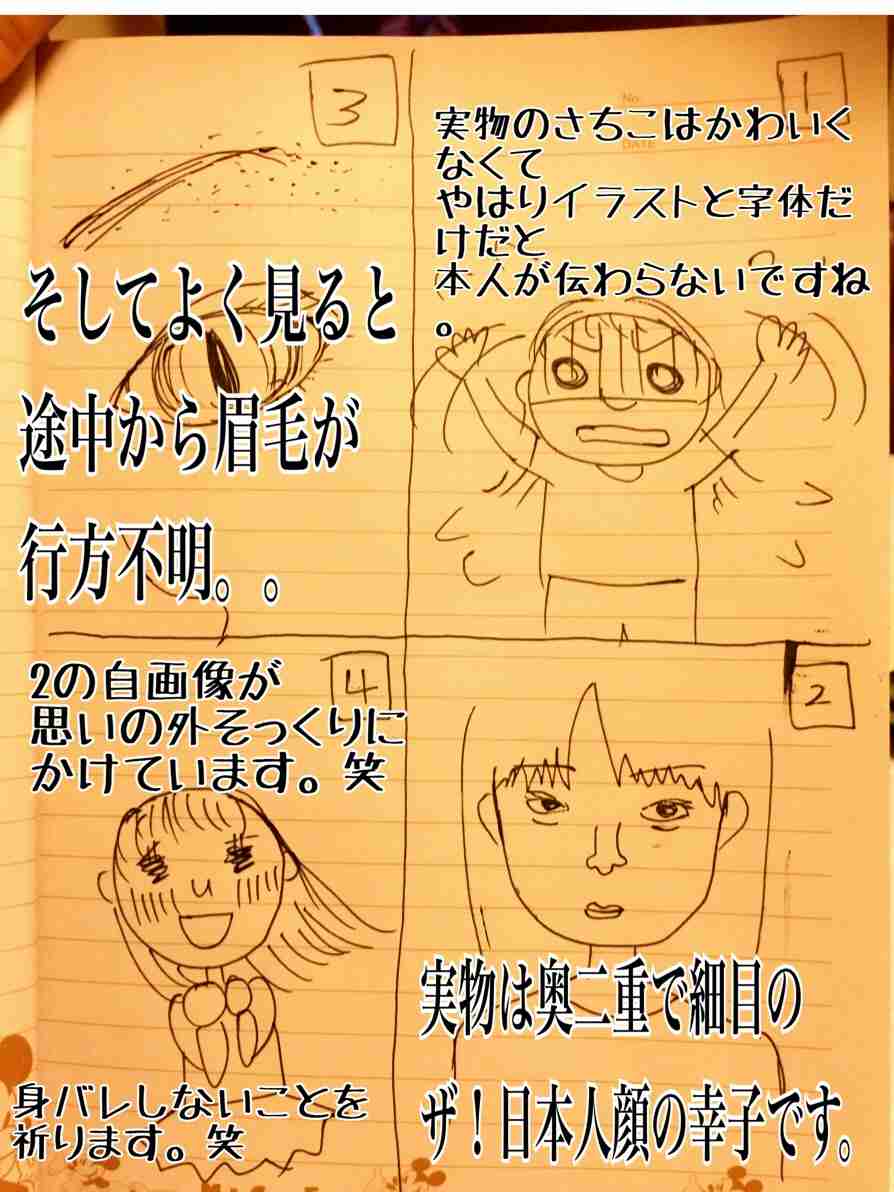 1
No.
DATE
実物のさちこはかわいく
なくて
やはりイラストと字体だ
けだと
本人が伝わらないですね
。
2
実物は奥二重で細目の
ザ！日本人顔の幸子です。
3
そしてよく見ると
途中から眉毛が
行方不明。。
4
2の自画像が
思いの外そっくりに
かけています。笑
身バレしないことを
祈ります。笑